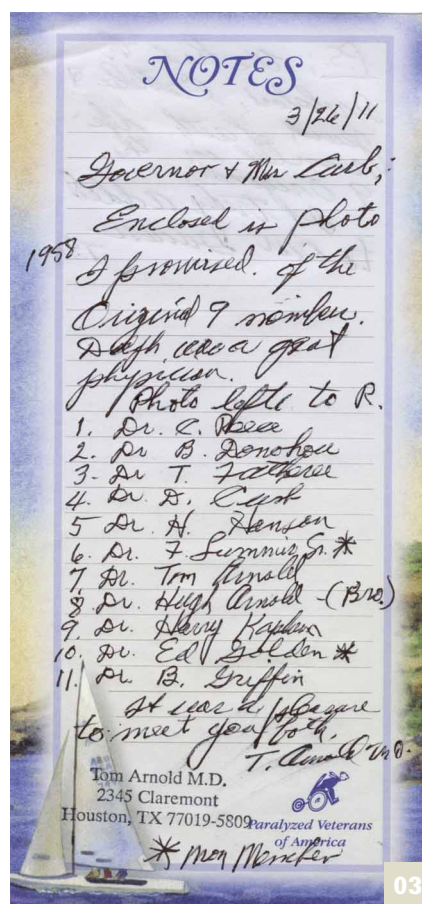 NOTES
3/26/11
Governor + Mrs Curb,:
Enclosed is photo
1958
I promised. of the
Original 9 member.
was a great
physician.
Photo lefte to R.
1. Dr. C. Reece
2. Dr B. Donohou
3- Dr T. Fatheree
4. Dr. D. Curb
5 Dr. H. Hanson
6. Dr. F. Summis Sr. *
7 Dr. Tom Arnold
8. Dr. Hugh Arnold - (Bro.)
9. Dr. Harry Kaplan
10. Dr. Ed Golden *
11. Dr. B. Griffin
It was a pleasure
to meet you both,
T. Arnold M.D.
Tom Arnold M.D.
2345 Claremont
Houston, TX 77019-5809
Paralyzed Veterans
of America
* Member
03